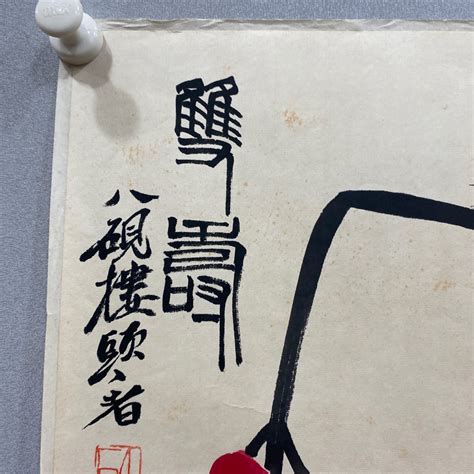 雙壽
八硯樓頭者